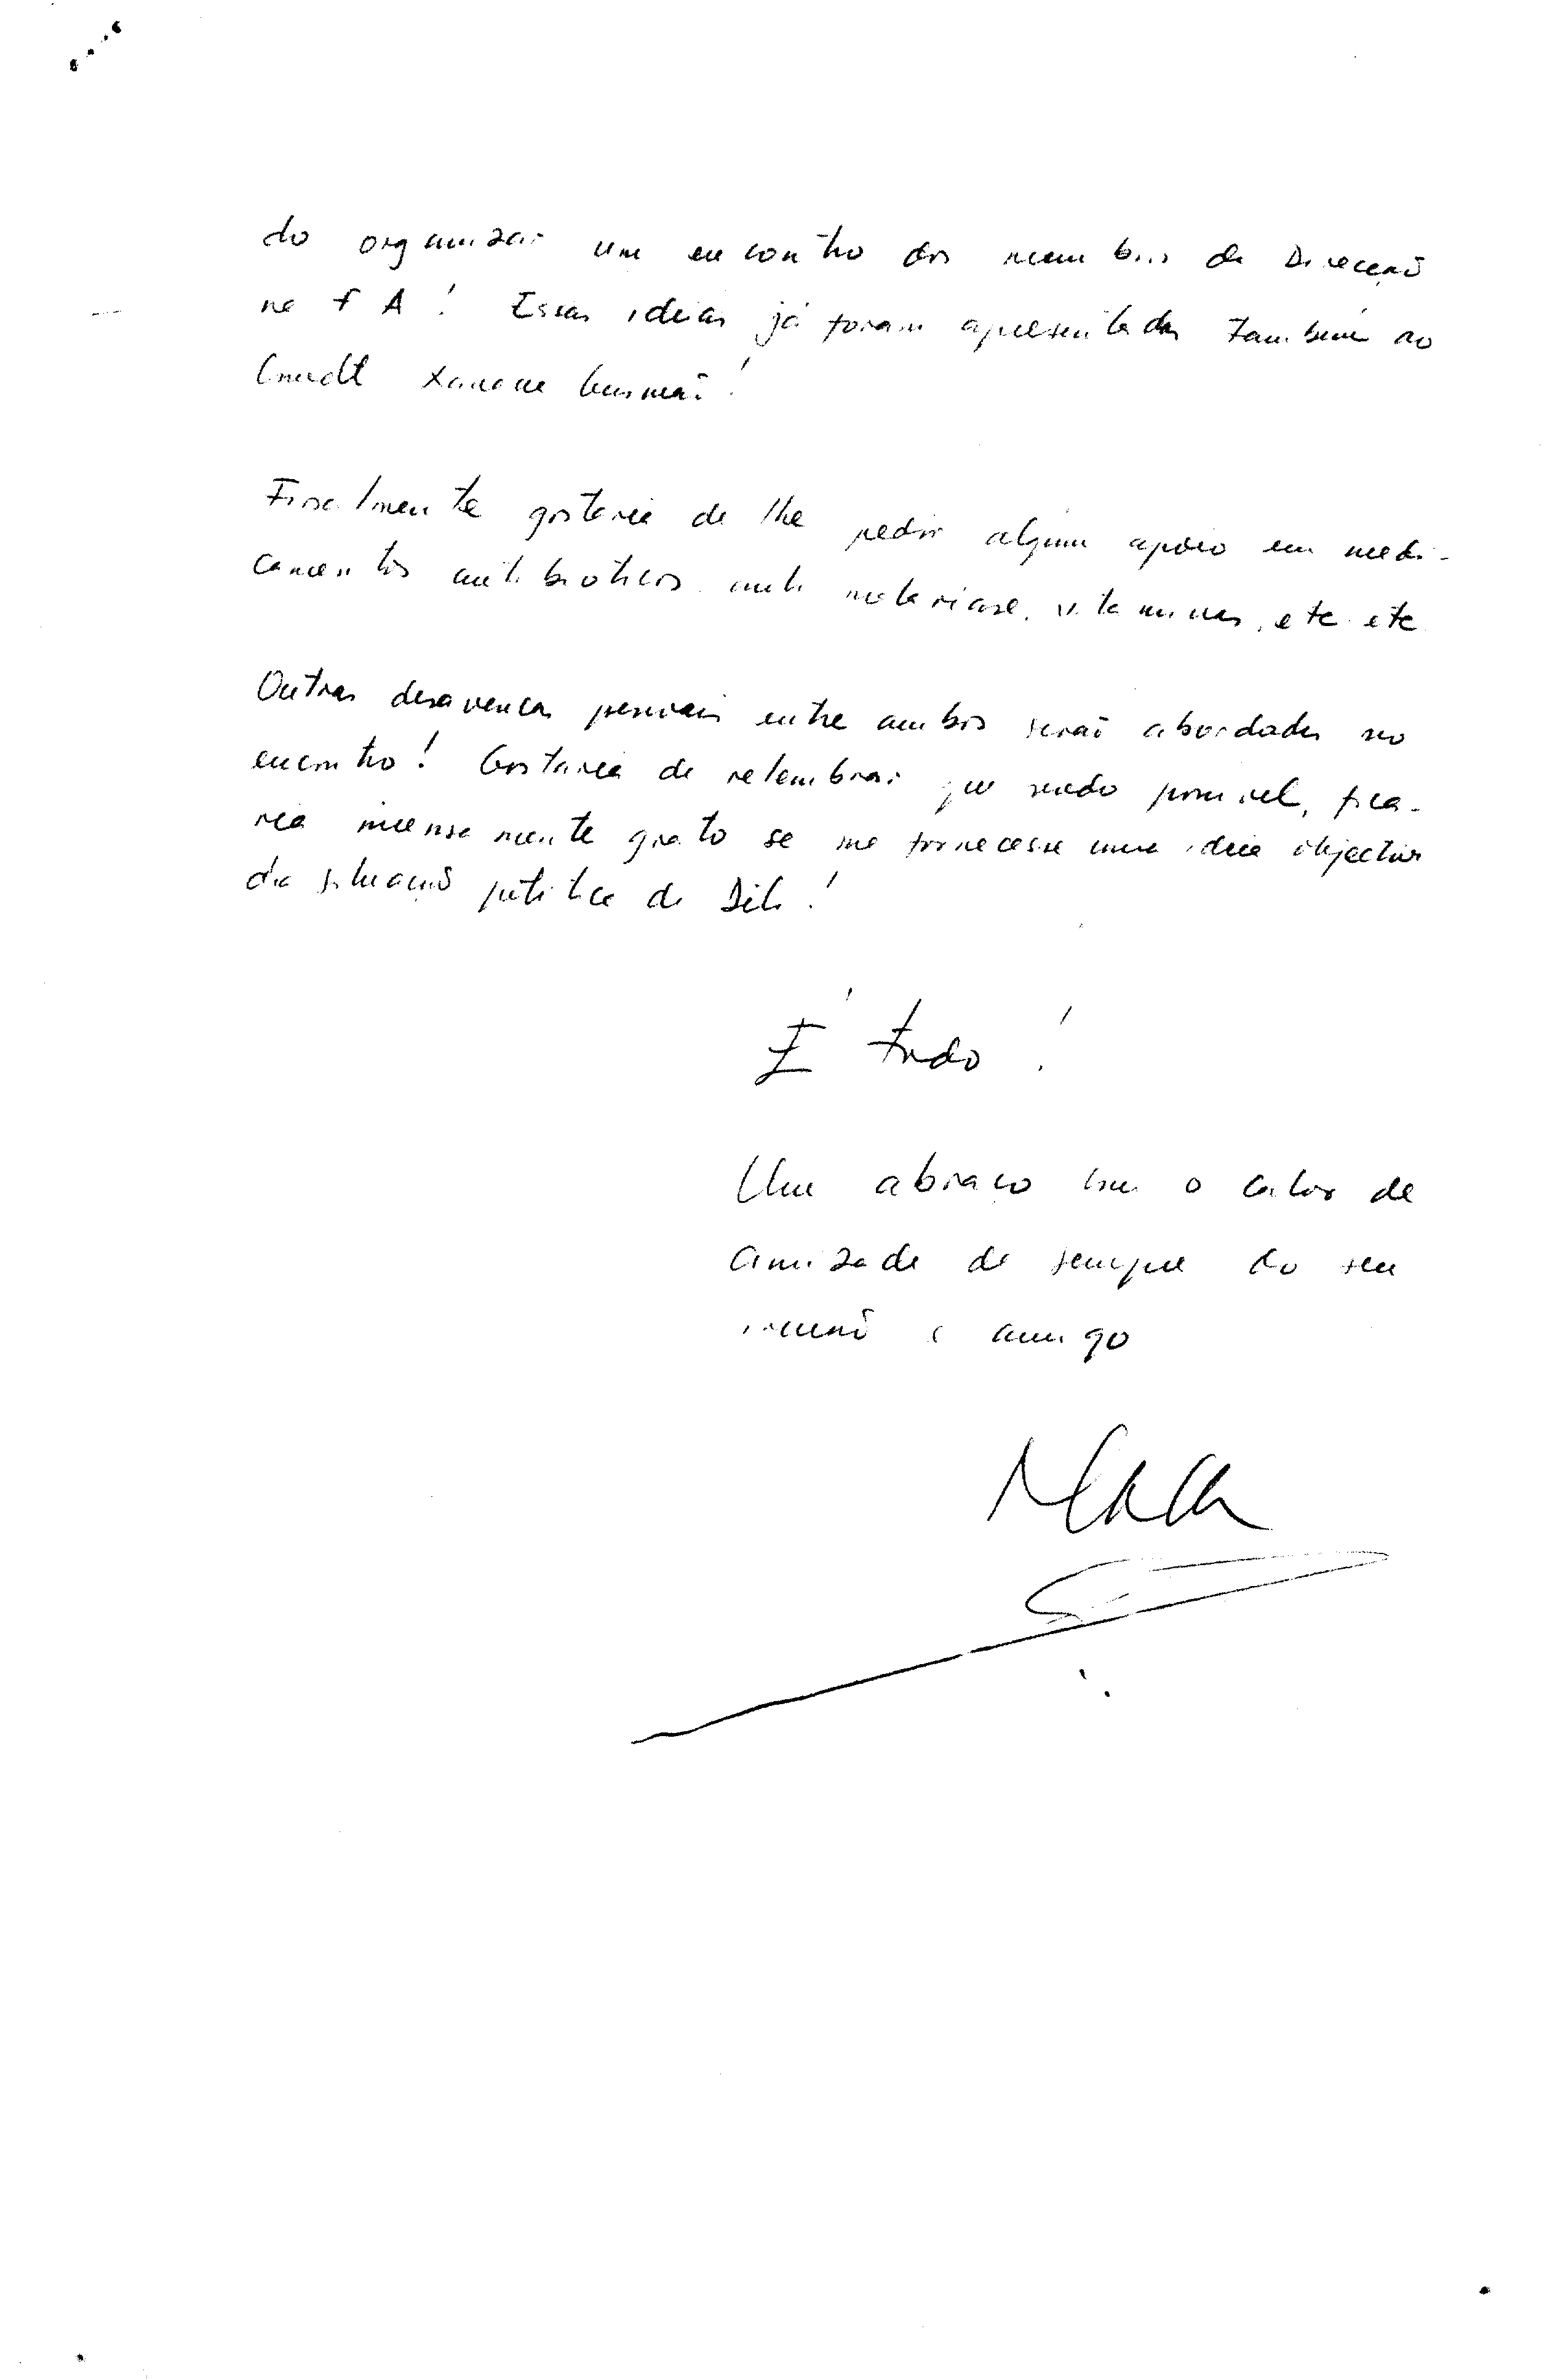 do organizar um encontro dos membros da Direcção
na F A! Essas ideias já foram apresentadas também ao
Cmdt Xanana Gusmão!
Finalmente gostaria de lhe pedir algum apoio em medi-
camentos antibioticos, anti malariase, vitaminas, etc etc
Outras desavenças pessoais entre ambos serão abordadas no
encontro! Gostaria de relembrar que sendo possivel, fica-
ria imensamente grato se me fornecesse uma ideia objectiva
da situação politica de Dili!
É tudo!
Um abraço com o calor de
amizade de sempre do seu
irmão e amigo